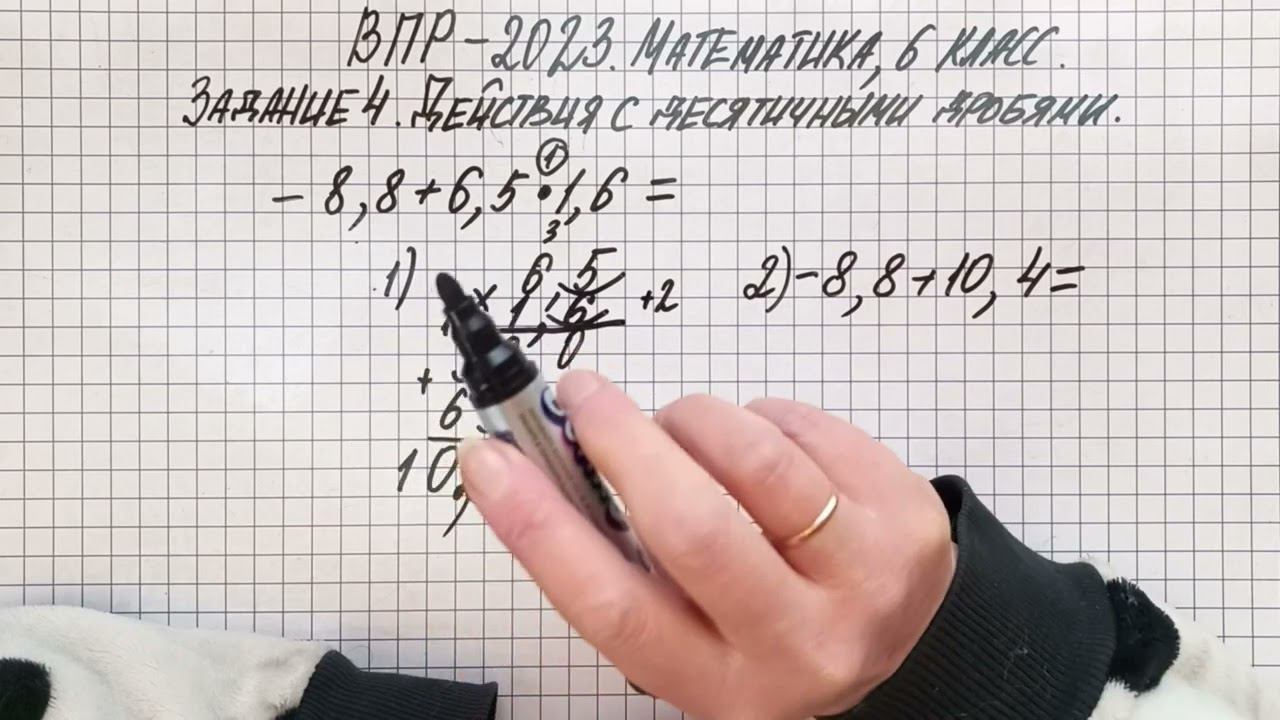 ВПР-2023. МАТЕМАТИКА, 6 КЛАСС.
ЗАДАНИЕ 4. ДЕЙСТВИЯ С ДЕСЯТИЧНЫМИ ДРОБЯМИ.
1
- 8,8 + 6,5 • 1,6 =
3
1) 6,5 2) -8,8+10,4=
× 1,6 +2
0
+
6
10,